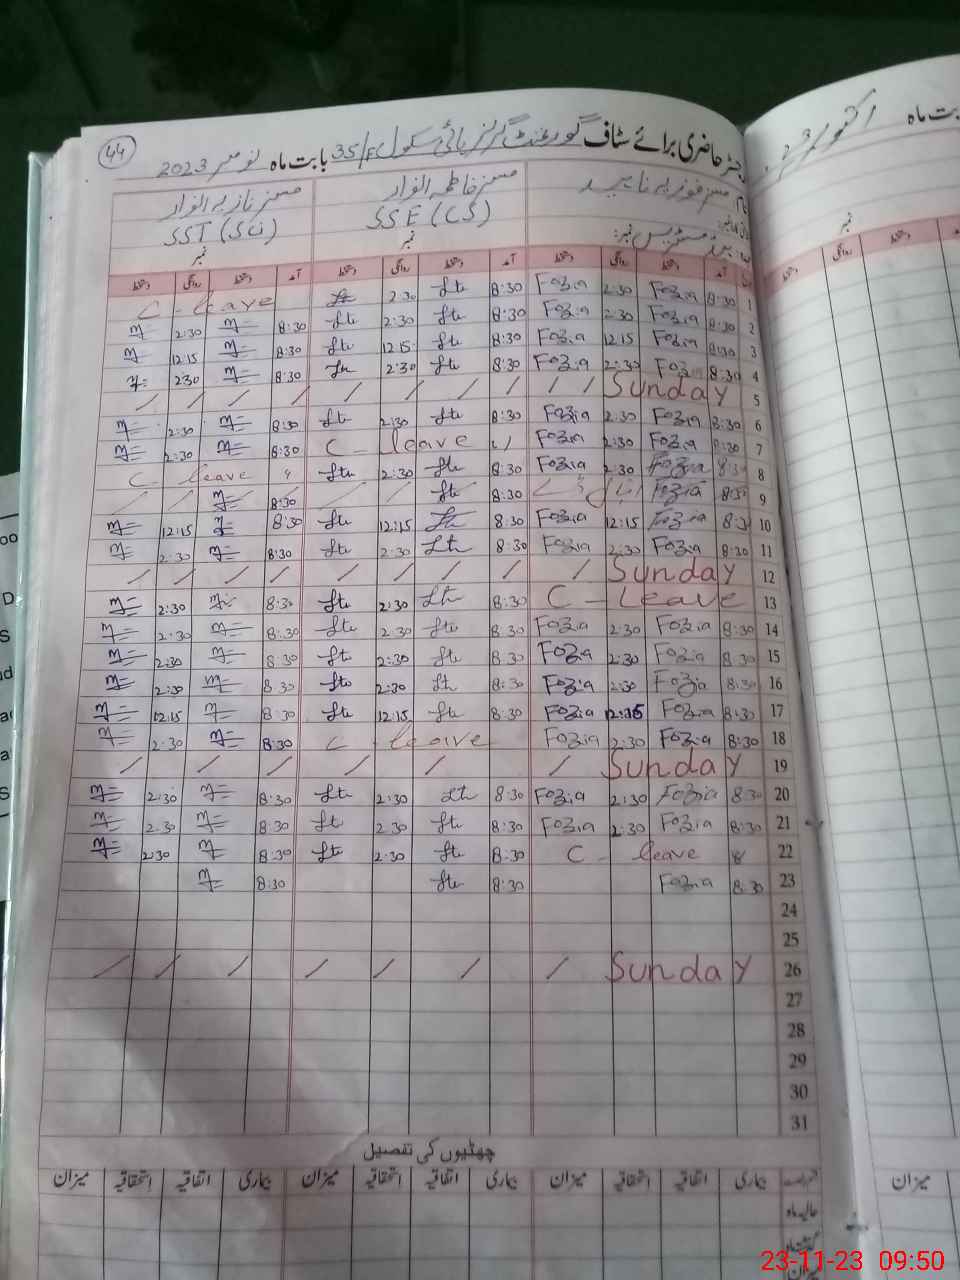 44
رجسٹر حاضری برائے سٹاف گورنمنٹ گرلز ہائی سکول 35/F بابت ماہ نومبر 2023
بابت ماہ اکتوبر
مسز فوزیہ ناہید مسز فاطمہ انوار مسز نازیہ انوار
ہیڈ مسٹریس SSE (CS) SST (Sci)
نمبر نمبر نمبر
آمد دستخط روانگی دستخط آمد دستخط روانگی دستخط آمد دستخط روانگی دستخط
1 8:30 Fozia 2:30 Fozia 8:30 2:30 C - leave
2 8:30 Fozia 2:30 Fozia 8:30 2:30 8:30 2:30
3 8:30 Fozia 12:15 Fozia 8:30 12:15 8:30 12:15
4 8:30 Fozia 2:30 Fozia 8:30 2:30 8:30 2:30
5 Sunday / / / / / / / /
6 8:30 Fozia 2:30 Fozia 8:30 2:30 8:30 2:30
7 8:30 Fozia 2:30 Fozia C - leave 8:30 2:30
8 8:30 Fozia 2:30 Fozia 8:30 2:30 C - leave
9 8:30 Fozia 8:30 8:30
10 8:30 Fozia 12:15 Fozia 8:30 12:15 8:30 12:15
11 8:30 Fozia 2:30 Fozia 8:30 2:30 8:30 2:30
12 Sunday / / / / / / / / /
13 C - Leave 8:30 2:30 8:30 2:30
14 8:30 Fozia 2:30 Fozia 8:30 2:30 8:30 2:30
15 8:30 Fozia 2:30 Fozia 8:30 2:30 8:30 2:30
16 8:30 Fozia 2:30 Fozia 8:30 2:30 8:30 2:30
17 8:30 Fozia 12:15 Fozia 8:30 12:15 8:30 12:15
18 8:30 Fozia 2:30 Fozia C - leave 8:30 2:30
19 Sunday / / / / / /
20 8:30 Fozia 2:30 Fozia 8:30 2:30 8:30 2:30
21 8:30 Fozia 2:30 Fozia 8:30 2:30 8:30 2:30
22 C - leave 8:30 2:30 8:30 2:30
23 8:30 Fozia 8:30 8:30
24
25
26 Sunday / / / / / / /
27
28
29
30
31
چھٹیوں کی تفصیل
بیماری اتفاقیہ استحقاقیہ میزان بیماری اتفاقیہ استحقاقیہ میزان بیماری اتفاقیہ استحقاقیہ میزان
حالیہ ماہ
میزان
میزان
23-11-23 09:50